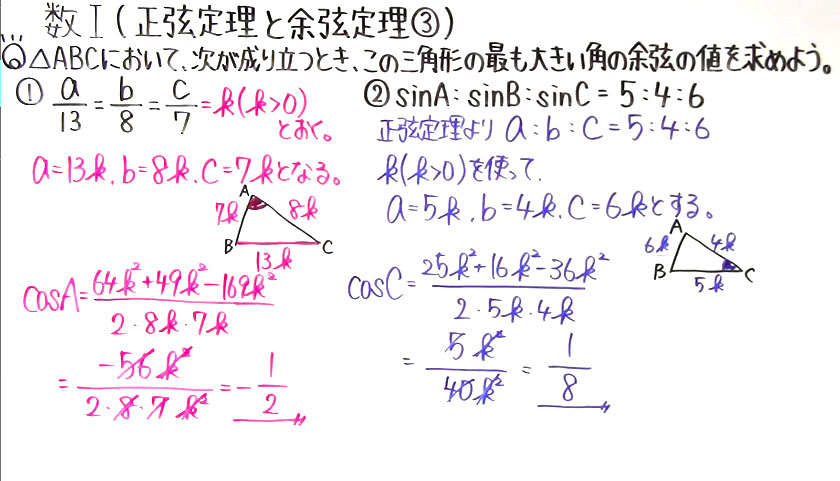 数Ⅰ(正弦定理と余弦定理③)
◎△ABCにおいて、次が成り立つとき、この三角形の最も大きい角の余弦の値を求めよう。
① a/13 = b/8 = c/7 = k(k>0)
とおく。
a=13k, b=8k, c=7kとなる。
A
7k 8k
B C
13k
cosA = (64k²+49k²-169k²)/(2・8k・7k)
= (-56k²)/(2・8・7k²) = -1/2
② sinA:sinB:sinC=5:4:6
正弦定理より a:b:c=5:4:6
k(k>0)を使って、
a=5k, b=4k, c=6kとする。
A
6k 4k
B C
5k
cosC = (25k²+16k²-36k²)/(2・5k・4k)
= 5k²/40k² = 1/8